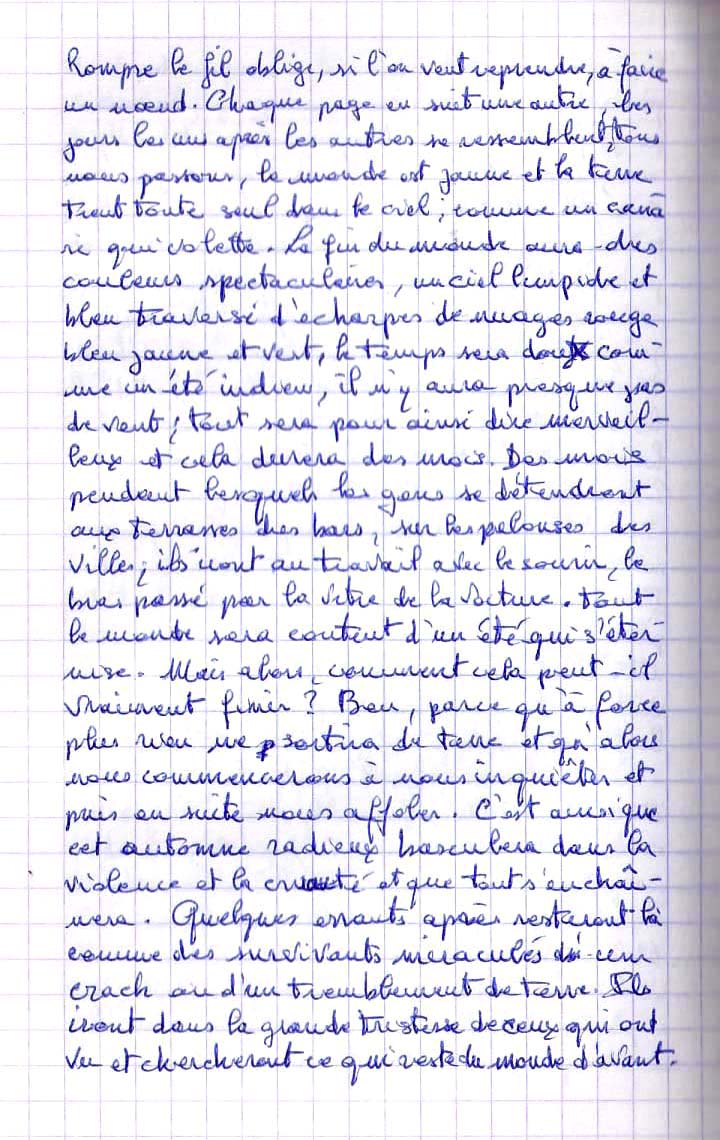 Rompre le fil oblige, si l'on veut reprendre, à faire
un nœud. Chaque page en suit une autre, les
jours les uns après les autres se ressemblent, tous
nous passons, le monde est jaune et la terre
tient toute seul dans le ciel ; comme un cana
ri qui volette. La fin du monde aura des
couleurs spectaculaires, un ciel limpide et
bleu traversé d'écharpes de nuages rouge
bleu jaune et vert, le temps sera doux com-
me un été indien, il n'y aura presque pas
de vent ; tout sera pour ainsi dire merveil-
leux et cela durera des mois. Des mois
pendant lesquels les gens se détendront
aux terrasses des bars, sur les pelouses des
villes ; ils iront au travail avec le sourir, le
bras passé par la vitre de la voiture. Tout
le monde sera content d'un été qui s'éter
nise. Mais alors, comment cela peut-il
vraiment finir ? Ben, parce qu'à force
plus rien ne sortira de terre et qu'alors
nous commencerons à nous inquiêter et
puis en suite nous affoler. C'est ainsi que
cet automne radieux basculera dans la
violence et la cruauté et que tout s'enchaî-
nera. Quelques errants après resteront là
comme des survivants miraculés d'un
crach ou d'un tremblement de terre. Ils
iront dans la grande tristesse de ceux qui ont
vu et chercheront ce qui reste du monde d'avant.